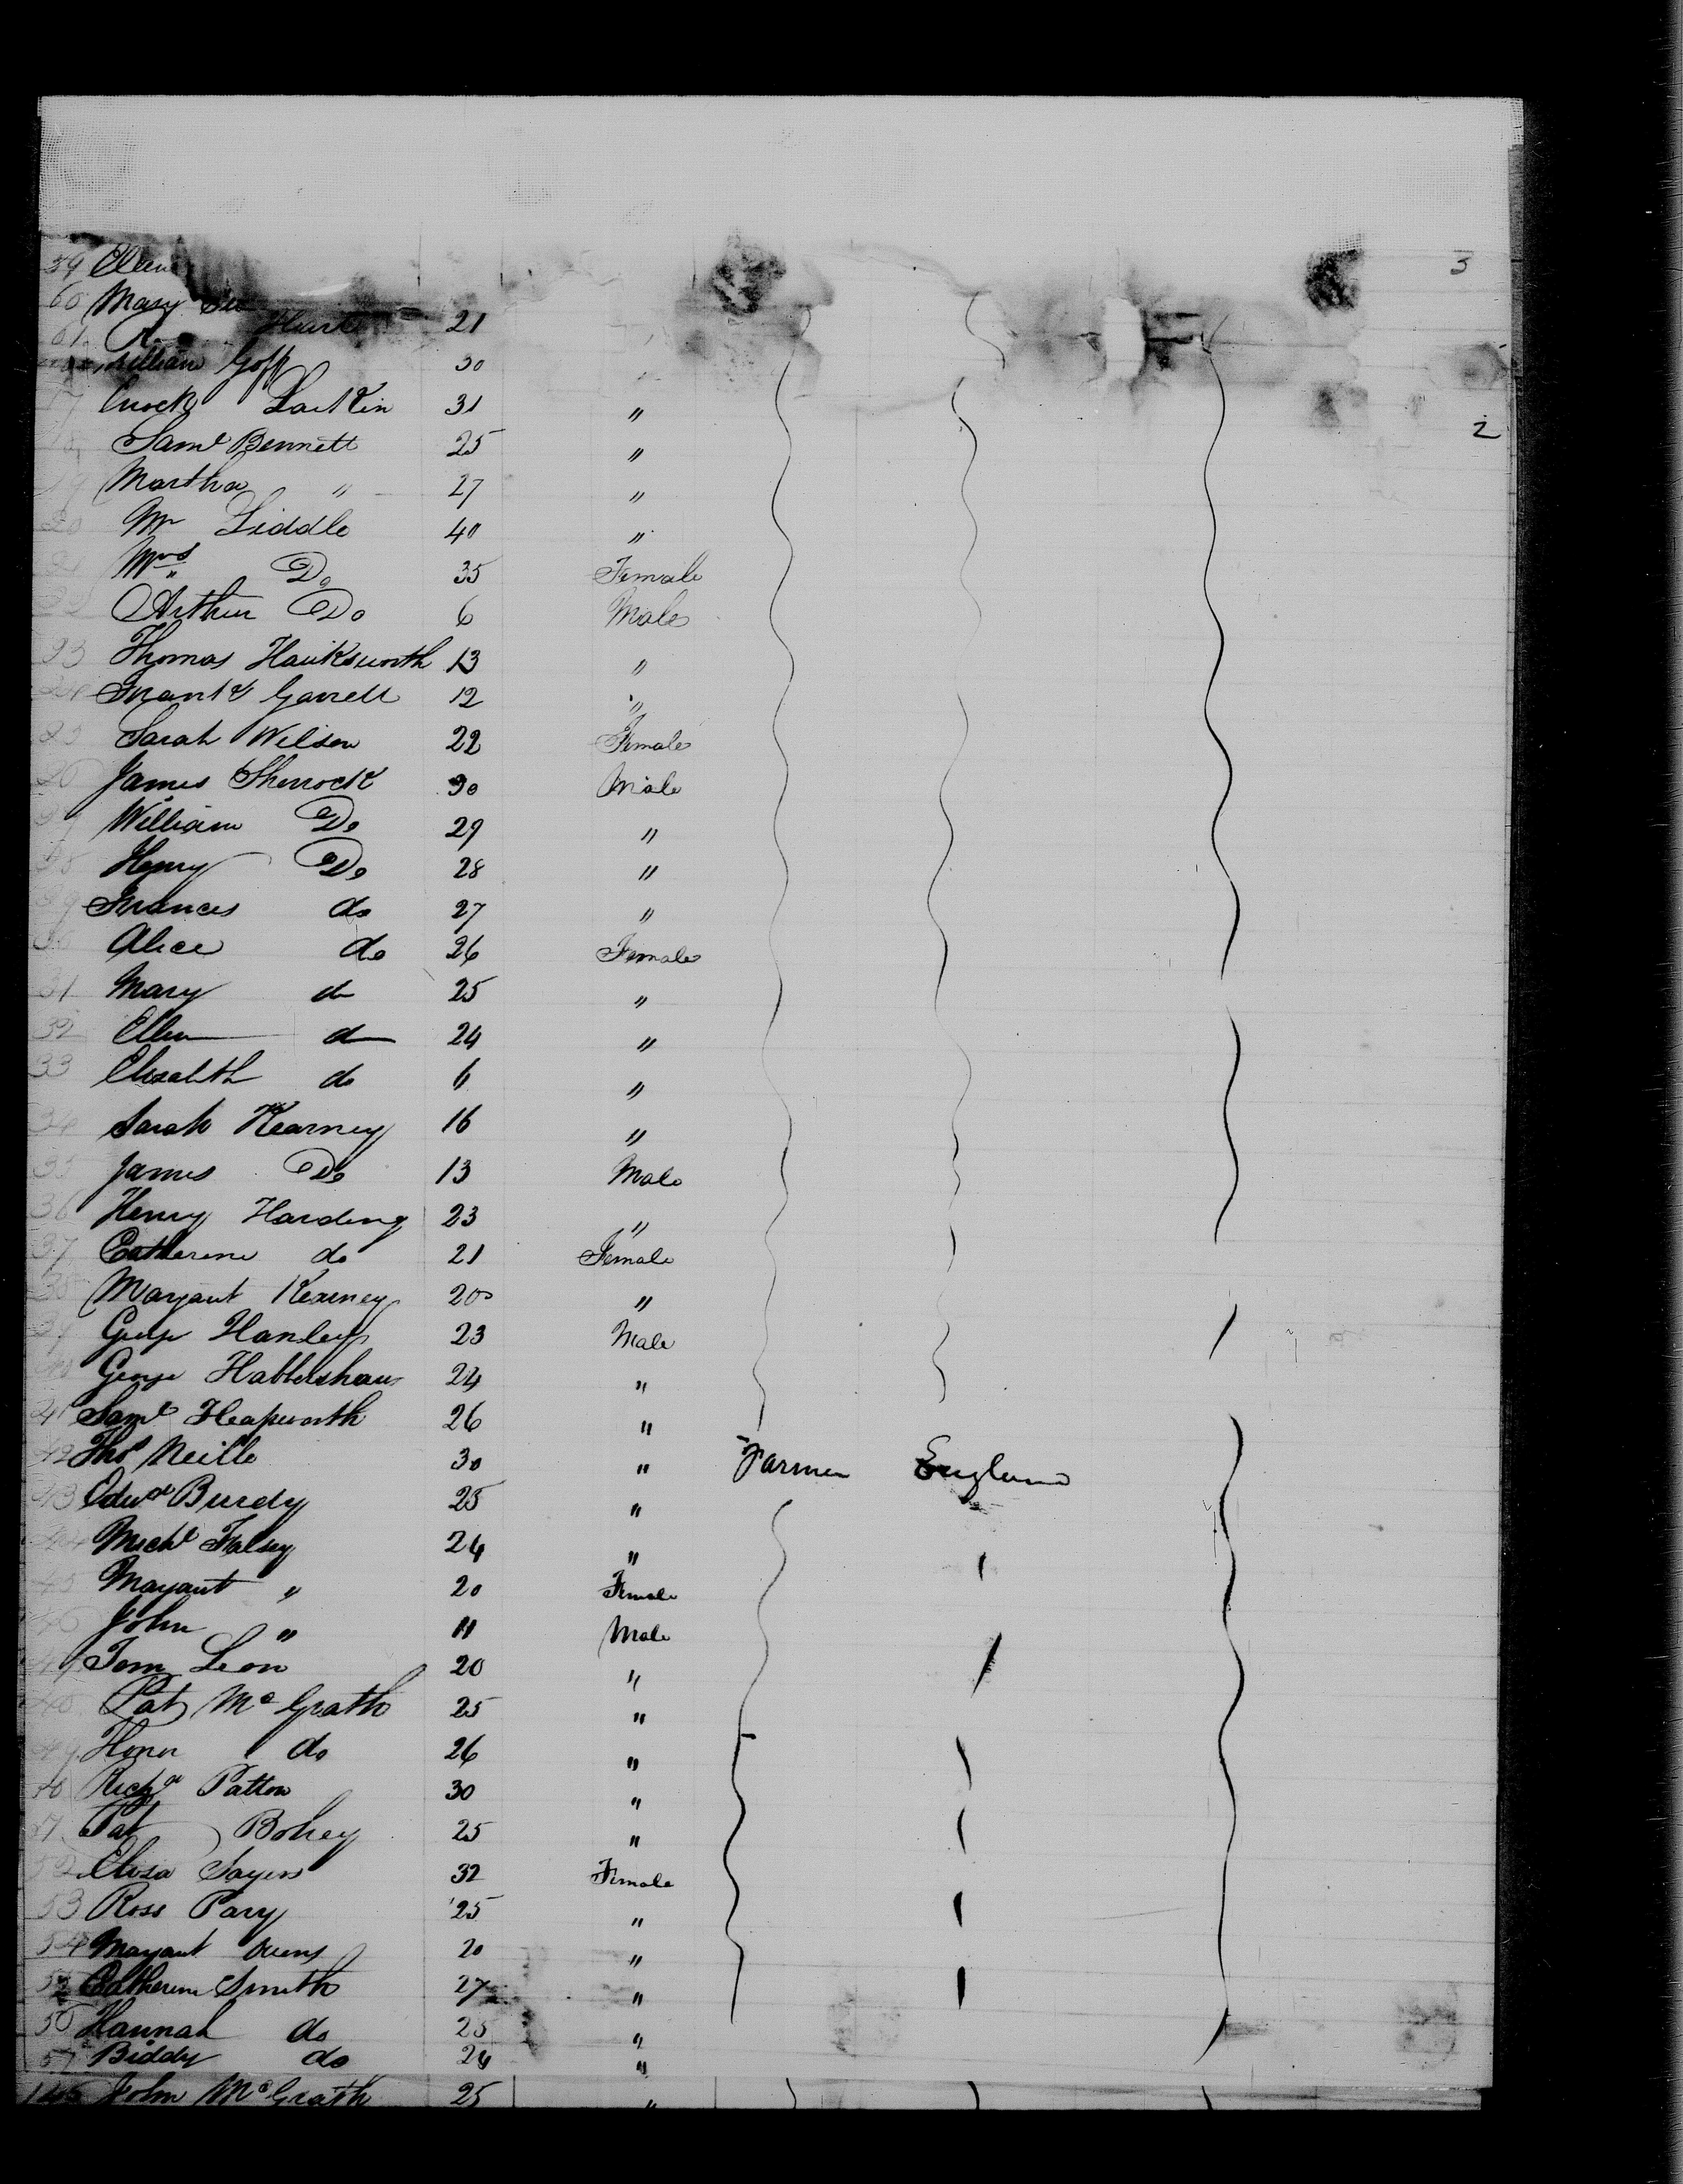 59 Ellen 3
60 Mary
61 Hurt 21
William Goff 30
17 Enock Larkin 31 "
18 Saml Bennett 25 " 2
19 Martha " 27 "
20 Mr Liddle 40 "
21 Mrs " Do 35 Female
22 Arthur Do 6 Male
23 Thomas Hawksworth 13 "
24 Frank Garrett 12 "
25 Sarah Wilson 22 Female
26 James Sherrock 30 Male
27 William Do 29 "
28 Henry Do 28 "
29 Frances do 27 "
30 Alice do 26 Female
31 Mary do 25 "
32 Ellen do 24 "
33 Elizabeth do 6 "
34 Sarah Kearney 16 "
35 James Do 13 Male
36 Henry Harding 23 "
37 Catherine do 21 Female
38 Margaret Kearney 20 "
39 George Hanley 23 Male
40 George Habbershaw 24 "
41 Saml Heapworth 26 "
42 Thos Neille 30 " Farmer England
43 Edwd Burdy 25 "
44 Michl Falsey 24 "
45 Margaret " 20 Female
46 John " 11 Male
47 Tom Leon 20 "
48 Pat McGrath 25 "
49 Honor do 26 "
50 Richd Patton 30 "
51 Pat Bohey 25 "
52 Eliza Sayers 32 Female
53 Ross Pary 25 "
54 Margaret Owens 20 "
55 Catherine Smith 27 "
56 Hannah do 25 "
57 Biddy do 24 "
John McGrath 25 "